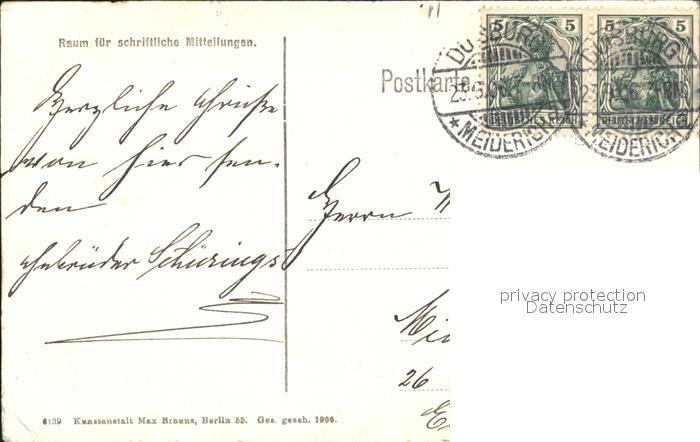 Raum für schriftliche Mitteilungen.
Postkarte
5 5 5 5
DUISBURG
DEUTSCHES REICH DEUTSCHES REICH
* MEIDERICH MEIDERICH
Herzliche Grüße
von hier sen-
den
Gebrüder Schürings
Herrn
26
privacy protection
Datenschutz
6139 Kunstanstalt Max Brauns, Berlin 55. Ges. gesch. 1906.